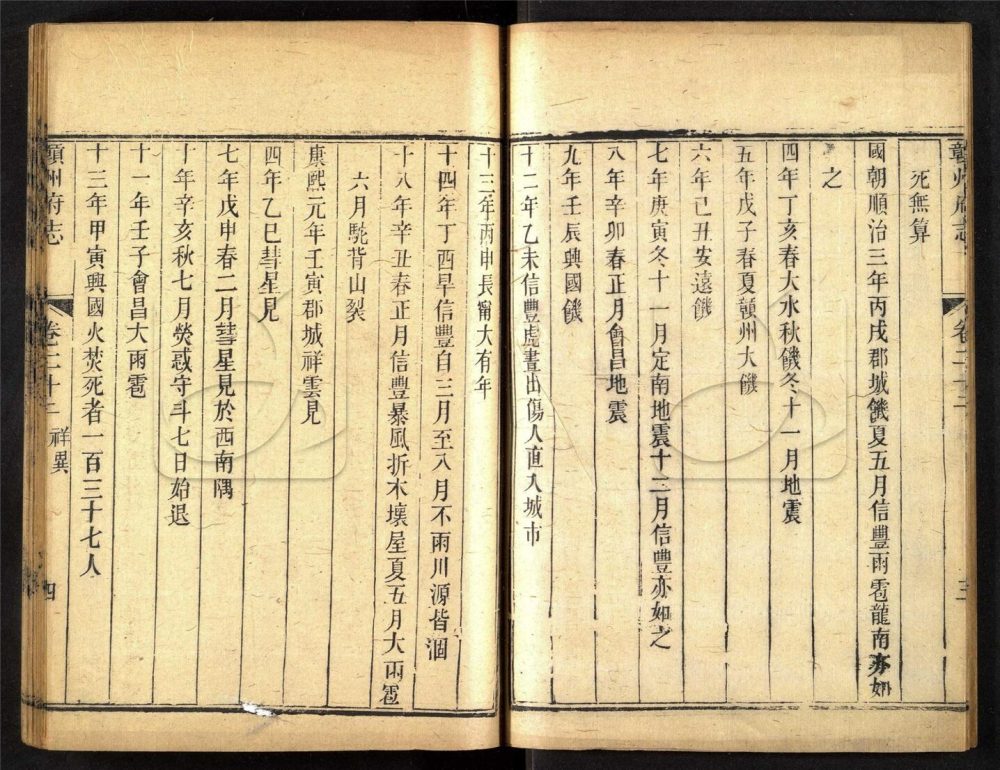 贛州府志
卷二十二
三
死無算
國朝順治三年丙戌郡城饑夏五月信豐雨雹龍南亦如
之
四年丁亥春大水秋饑冬十一月地震
五年戊子春夏贛州大饑
六年己丑安遠饑
七年庚寅冬十一月定南地震十二月信豐亦如之
八年辛卯春正月會昌地震
九年壬辰興國饑
十二年乙未信豐虎晝出傷人直入城市
十三年丙申長甯大有年
十四年丁酉旱信豐自三月至八月不雨川源皆涸
十八年辛丑春正月信豐暴風折木壞屋夏五月大雨雹
六月駝背山裂
康熙元年壬寅郡城祥雲見
四年乙巳彗星見
七年戊申春二月彗星見於西南隅
十年辛亥秋七月熒惑守斗七日始退
十一年壬子會昌大雨雹
十三年甲寅興國火焚死者一百三十七人
贛州府志
卷二十二
祥異
四